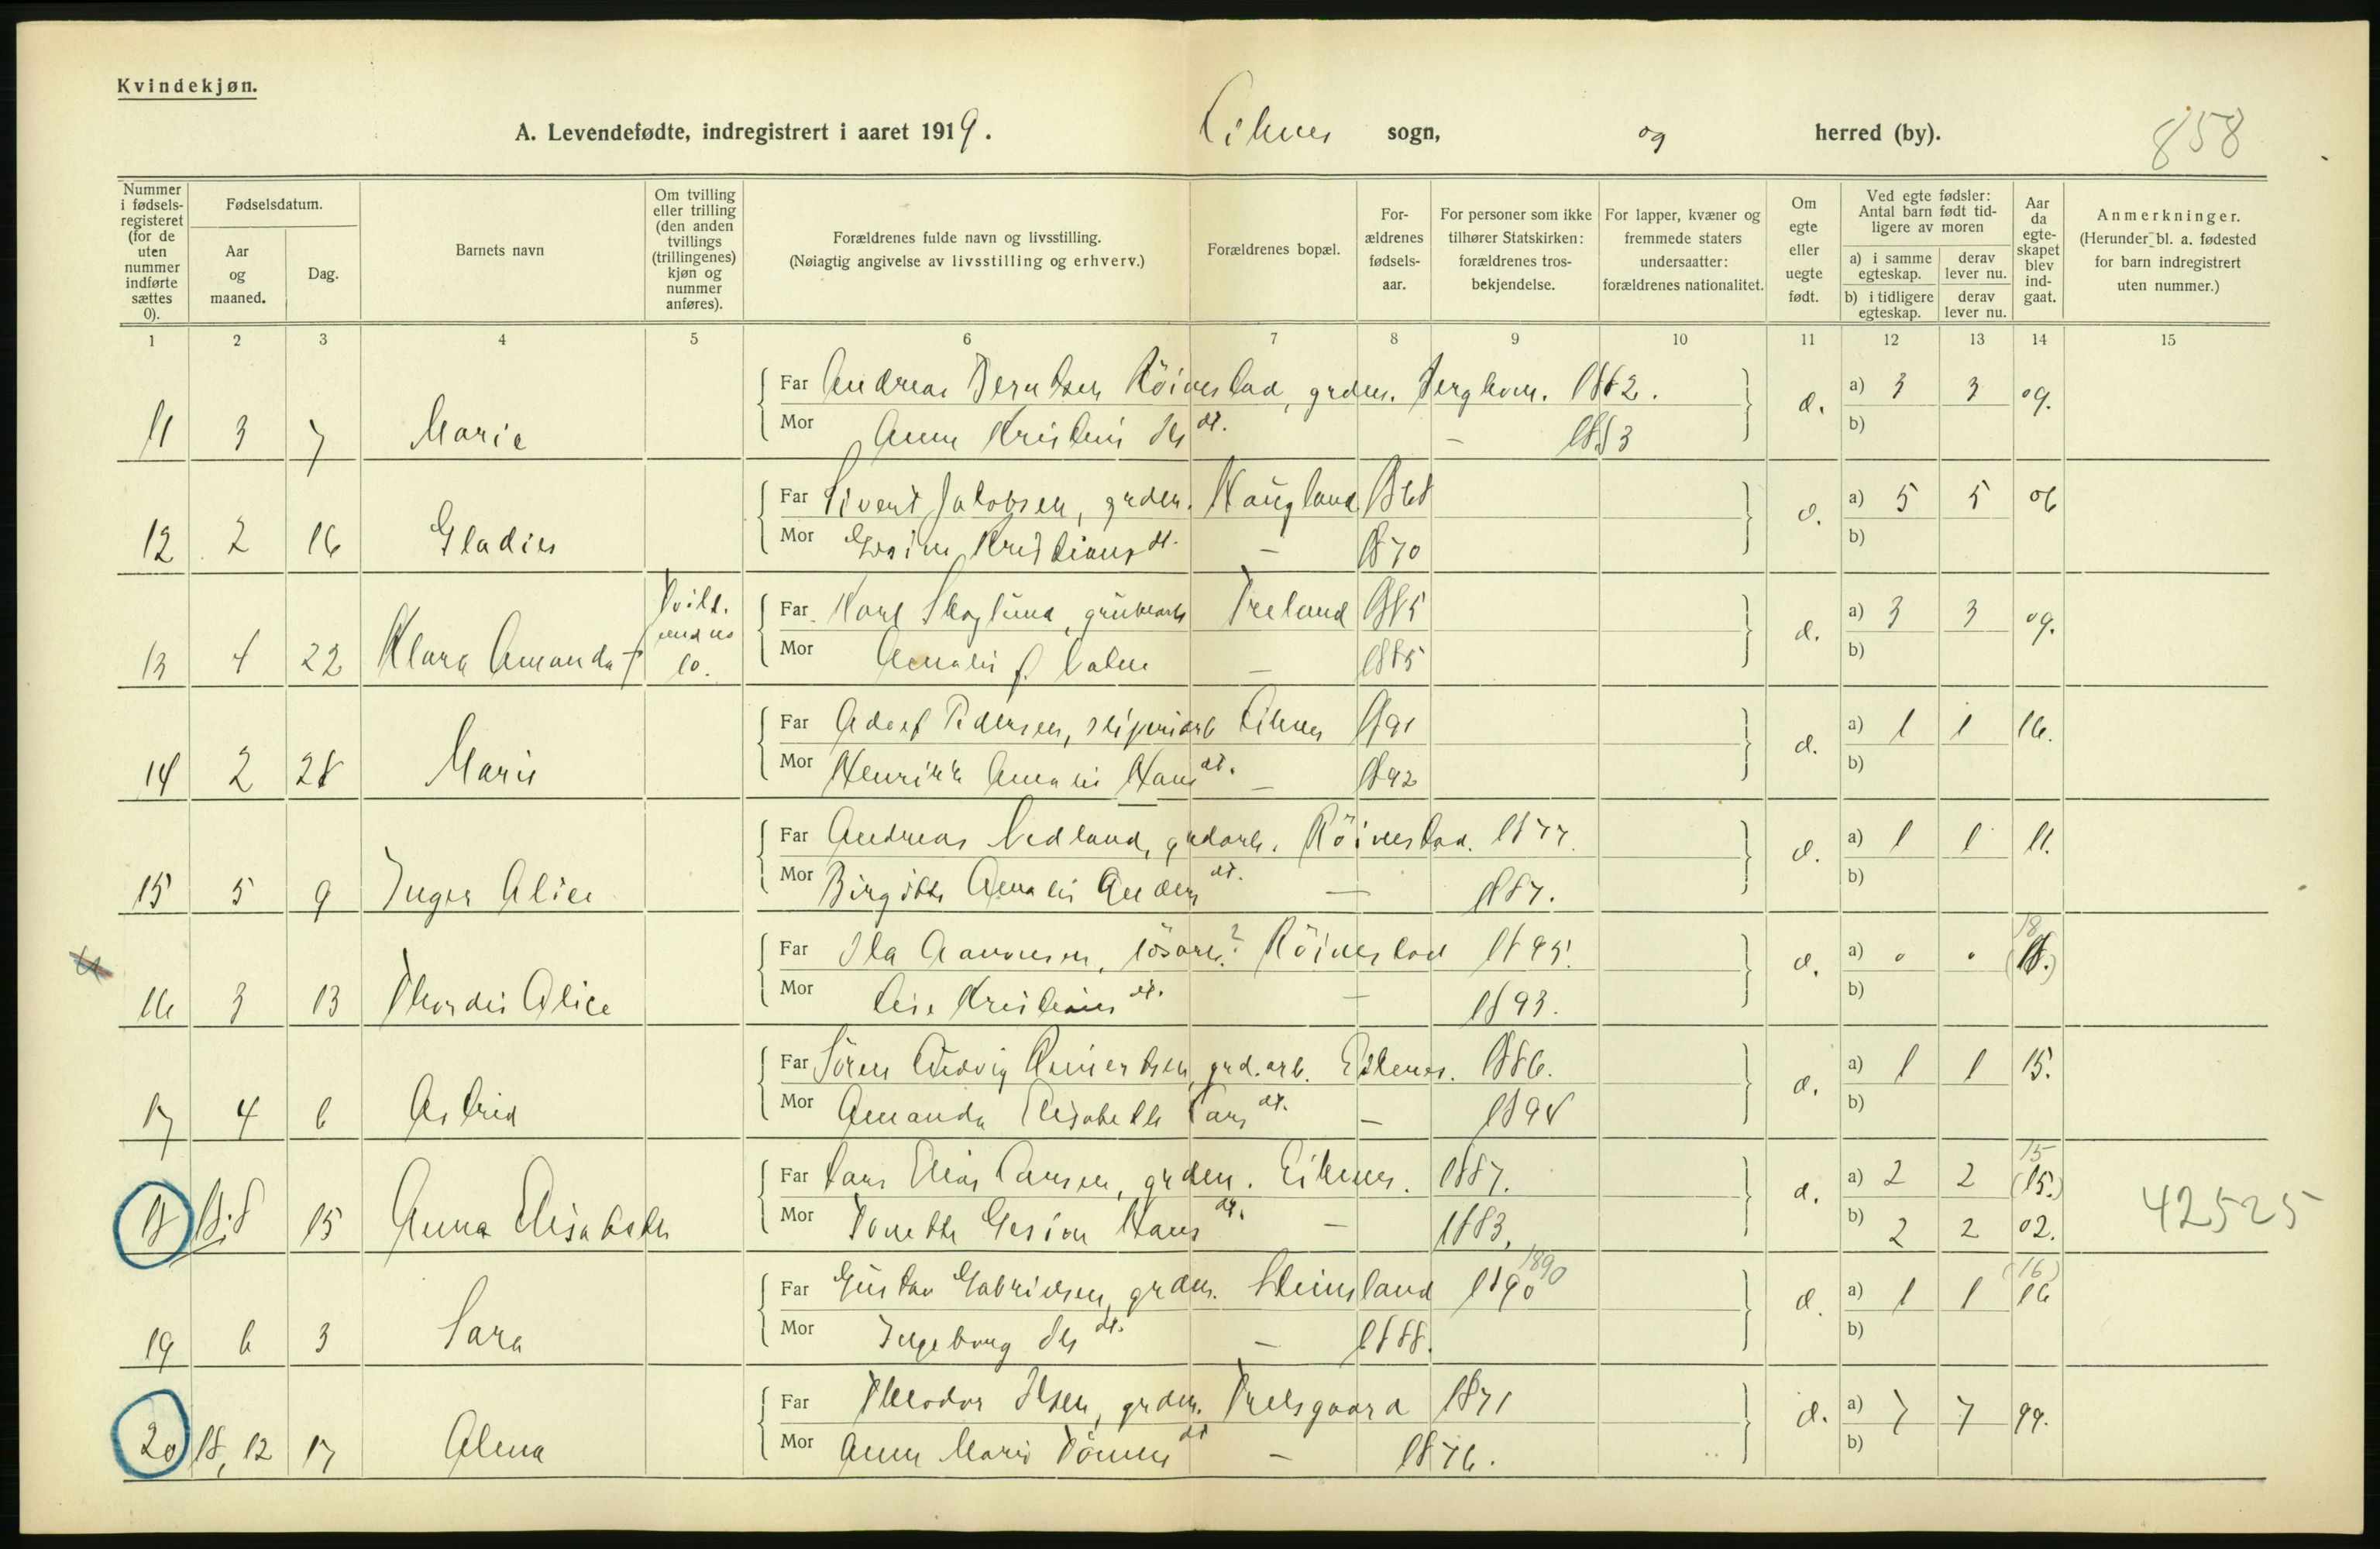 Kvindekjøn.
A. Levendefødte, indregistrert i aaret 1919. sogn, og herred (by). 858
Nummer i fødsels-registeret (for de uten nummer indførte sættes 0).
Fødselsdatum.
Aar og maaned.
Dag.
Barnets navn
Om tvilling eller trilling (den anden tvillings (trillingenes) kjøn og nummer anføres).
Forældrenes fulde navn og livsstilling. (Nøiagtig angivelse av livsstilling og erhverv.)
Forældrenes bopæl.
For-ældrenes fødsels-aar.
For personer som ikke tilhører Statskirken: forældrenes tros-bekjendelse.
For lapper, kvæner og fremmede staters undersaatter: forældrenes nationalitet.
Om egte eller uegte født.
Ved egte fødsler: Antal barn født tid-ligere av moren
a) i samme egteskap. derav lever nu.
b) i tidligere egteskap. derav lever nu.
Aar da egte-skapet blev ind-gaat.
Anmerkninger. (Herunder bl. a. fødested for barn indregistrert uten nummer.)
1 2 3 4 5 6 7 8 9 10 11 12 13 14 15
Far Andreas Berntsen Röinestad, grdm. 1882. a) 3 3 09.
11 3 7 Marie Mor 1883 b)
Far Sivert Jakobsen, grdm. Haugland 1868 a) 5 5 06
12 2 16 Gladies Mor – 1870 b)
Far Karl Skoglund, Treland 1885 a) 3 3 09.
13 4 22 Klara Amanda † Tvill. 10. Mor Amalie f. – 1885 b)
Far Adolf Pedersen, 1891 a) 1 1 16.
14 2 28 Marie Mor Henrikke Amalie Hansdt. – 1892 b)
Far Andreas Nedland, Röinestad. 1877. a) 1 1 11.
15 5 9 Inger Alice Mor Birgitte Amalie dt. – 1887. b)
Far Aanonsen, lösarb.? Röinestad 1895. a) 18 (18.)
16 3 13 Thordis Alice Mor – 1893. b)
Far Sören Ludvig grd.arb. 1886. a) 1 1 15.
17 4 6 Astrid Mor Amanda Elisabeth Larsdt. – 1894 b)
Far Lars Elias Larsen, grdm. Eikenes. 1887. a) 2 2 15 (15.)
18 18.8 15 Anna Elisabeth Mor Tonette Gesine Hansdt. – 1883. b) 2 2 02. 42525
Far Gustav Gabrielsen, grdm. Steinsland 1890 1890 a) 1 1 (16) 16
19 6 3 Sara Mor Ingeborg dt. – 1888. b)
Far Theodor Olsen, grdm. Trelsgaard 1871 a) 7 7 99.
20 18, 12 17 Alma Mor Anne Marie dt – 1876. b)